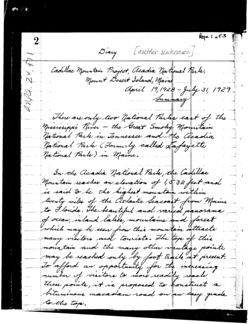 Page 1 of 3
2
Diary [author unknown]
Cadillac Mountain Project, Acadia National Park,
Mount Desert Island, Maine
April 19, 1928 - July 31, 1929
Summary
There are only two National Parks east of the
Mississippi River - the Great Smoky Mountain
National Park in Tennessee and the Acadia
National Park (Formerly called Lafayette
National Park) in Maine.
In the Acadia National Park, the Cadillac
Mountain reaches an elevation of 1,532 feet and
is said to be the highest mountain within
twenty miles of the Atlantic Seacoast from Maine
to Florida. The beautiful and varied panorama
of ocean, island, lake, mountains and forest
which may be seen from this mountain attracts
many visitors and tourists. The top of this
mountain and the many other vantage points
may be reached only by foot trails at present.
To afford an opportunity for the increasing
number of visitors to more readily reach
these points, it is proposed to construct a
bituminous macadam road on an easy grade
to the top.